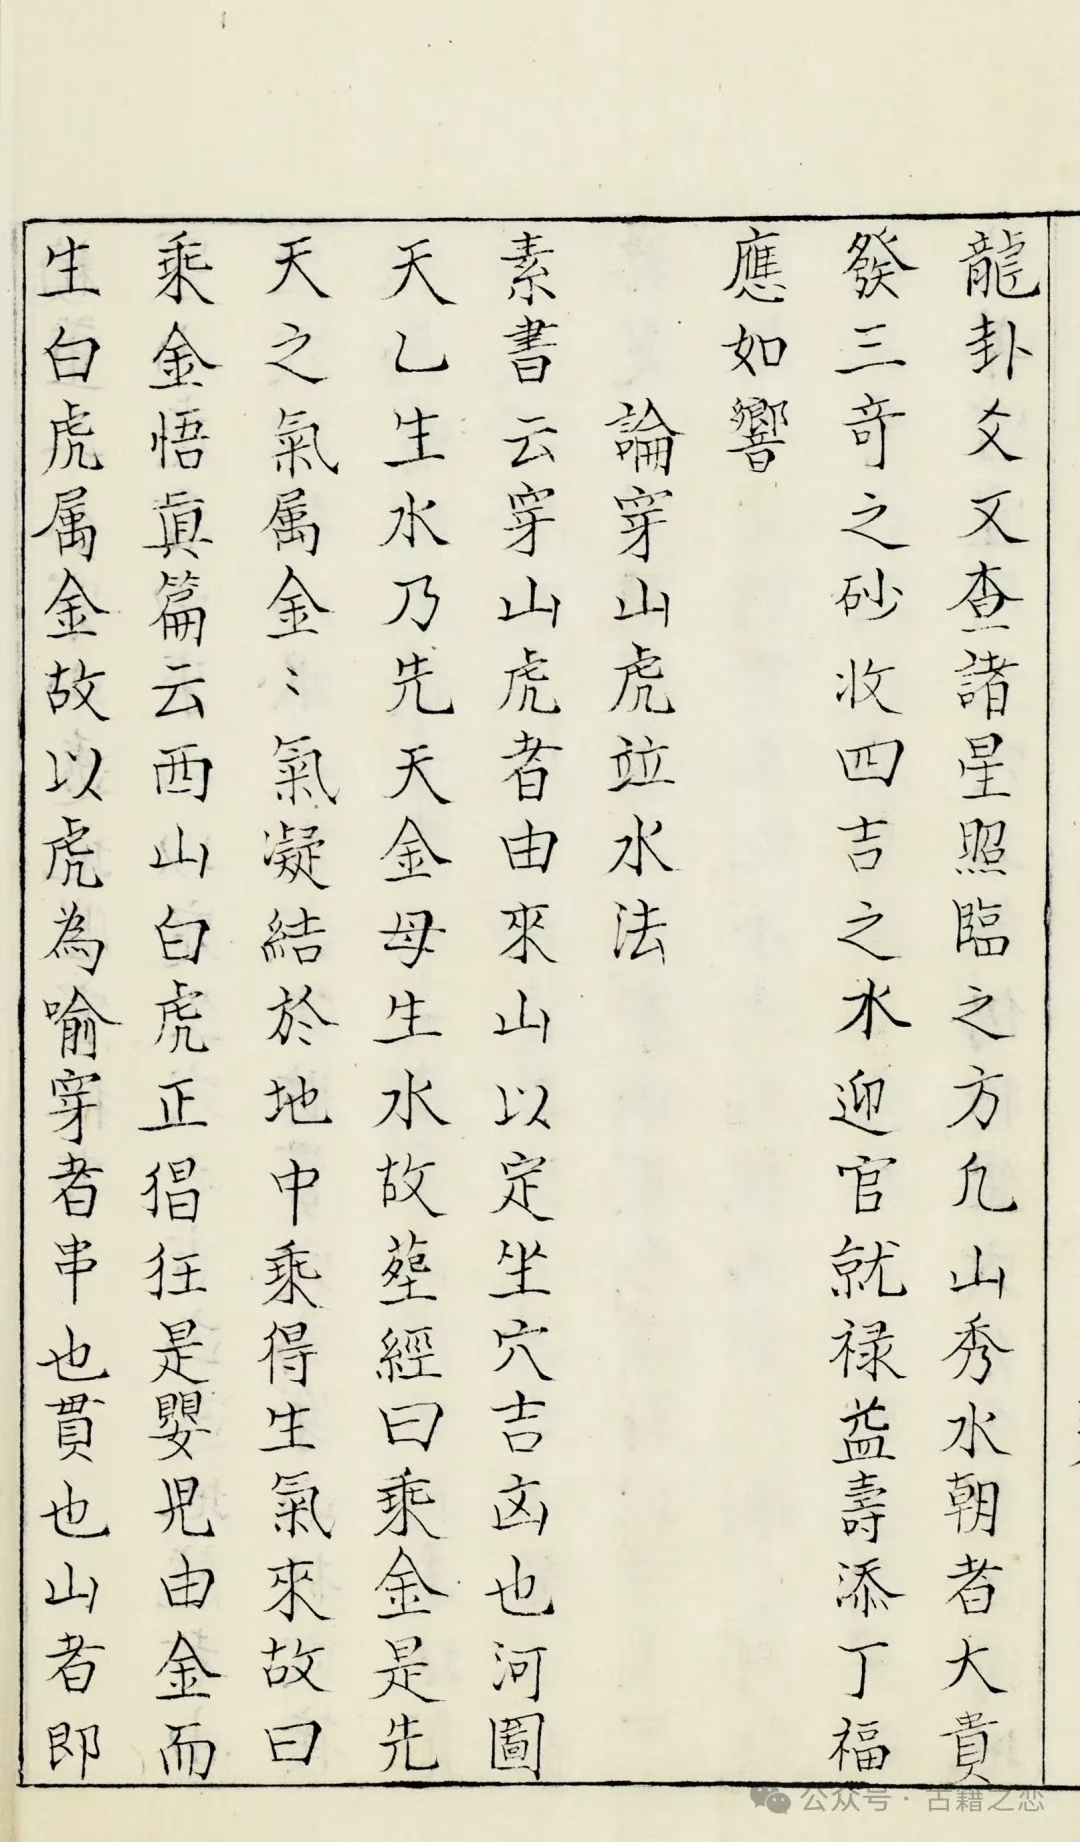 龍卦爻又查諸星照臨之方凢山秀水朝者大貴
發三竒之砂收四吉之水迎官就禄益壽添丁福
應如響
論穿山虎竝水法
素書云穿山虎者由來山以定坐穴吉凶也河圖
天乙生水乃先天金母生水故塟經曰乘金是先
天之氣属金〻氣凝結於地中乘得生氣來故曰
乘金悟眞篇云西山白虎正猖狂是嬰児由金而
生白虎属金故以虎為喻穿者串也貫也山者即
公众号·古籍之恋